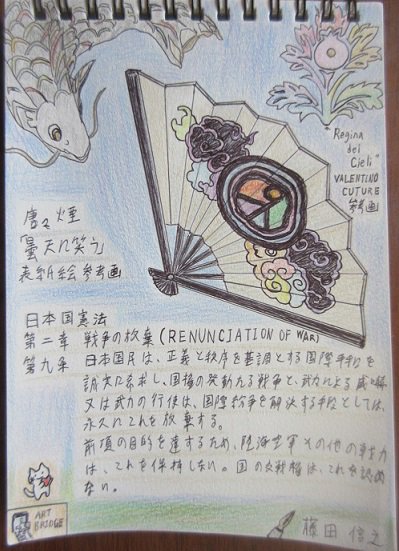 "Regina
del
Cieli"
VALENTINO
CUTURE
参考画
唐々煙
「曇天に笑う」
表紙絵参考画
日本国憲法
第二章 戦争の放棄(RENUNCIATION OF WAR)
第九条 日本国民は、正義と秩序を基調とする国際平和を
誠実に希求し、国権の発動たる戦争と、武力による威嚇
又は武力の行使は、国際紛争を解決する手段としては、
永久にこれを放棄する。
前項の目的を達するため、陸海空軍その他の戦力
は、これを保持しない。国の交戦権は、これを認め
ない。
ART
BRIDGE
藤田信之